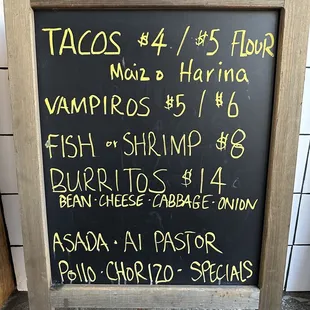 TACOS $4 / $5 FLOUR
Maiz o Harina
VAMPIROS $5 / $6
FISH or SHRIMP $8
BURRITOS $14
BEAN · CHEESE · CABBAGE · ONION
ASADA · Al PASTOR
Pollo · CHORIZO - SPECIALS